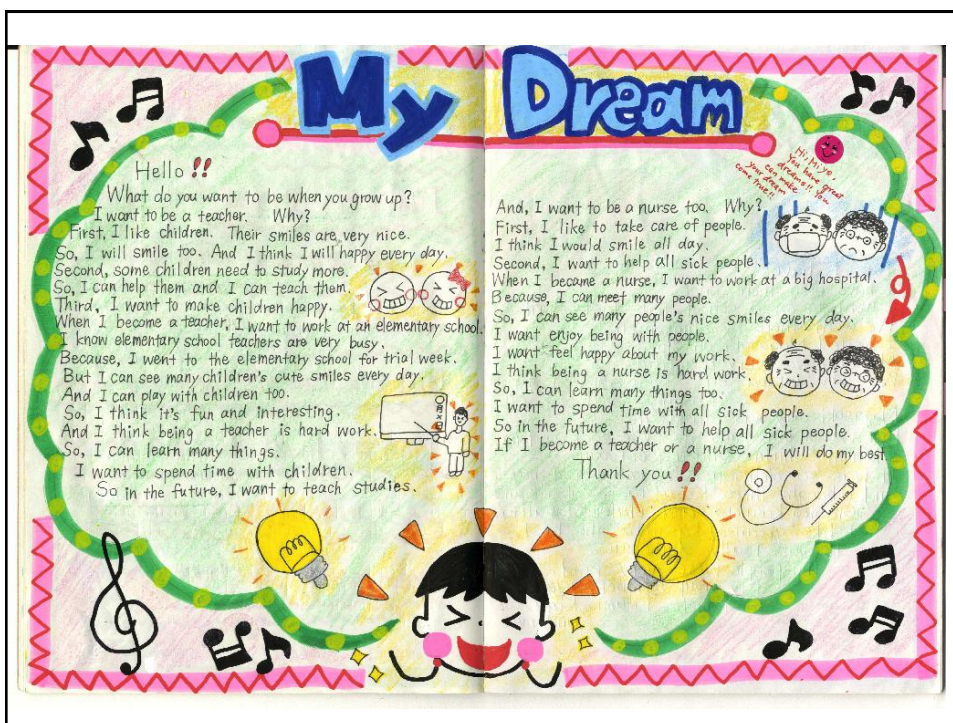 My Dream
Hello !!
What do you want to be when you grow up?
I want to be a teacher. Why?
First, I like children. Their smiles are very nice.
So, I will smile too. And I think I will happy every day.
Second, some children need to study more.
So, I can help them and I can teach them.
Third, I want to make children happy.
When I become a teacher, I want to work at an elementary school.
I know elementary school teachers are very busy.
Because, I went to the elementary school for trial week.
But I can see many children's cute smiles every day.
And I can play with children too.
So, I think it's fun and interesting.
And I think being a teacher is hard work.
So, I can learn many things.
I want to spend time with children.
So in the future, I want to teach studies.
Hi, Miyo,
You have great
dreams!! You
can make
your dream
come true!!
And, I want to be a nurse too. Why?
First, I like to take care of people.
I think I would smile all day.
Second, I want to help all sick people.
When I became a nurse, I want to work at a big hospital.
Because, I can meet many people.
So, I can see many people's nice smiles every day.
I want enjoy being with people.
I want feel happy about my work.
I think being a nurse is hard work.
So, I can learn many things too.
I want to spend time with all sick people.
So in the future, I want to help all sick people.
If I become a teacher or a nurse, I will do my best
Thank you !!